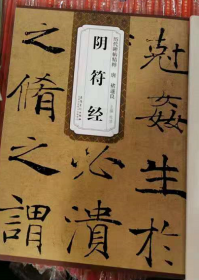 历代碑帖精粹 唐 褚遂良
阴符经
尅姦生於
必溃
之脩之謂